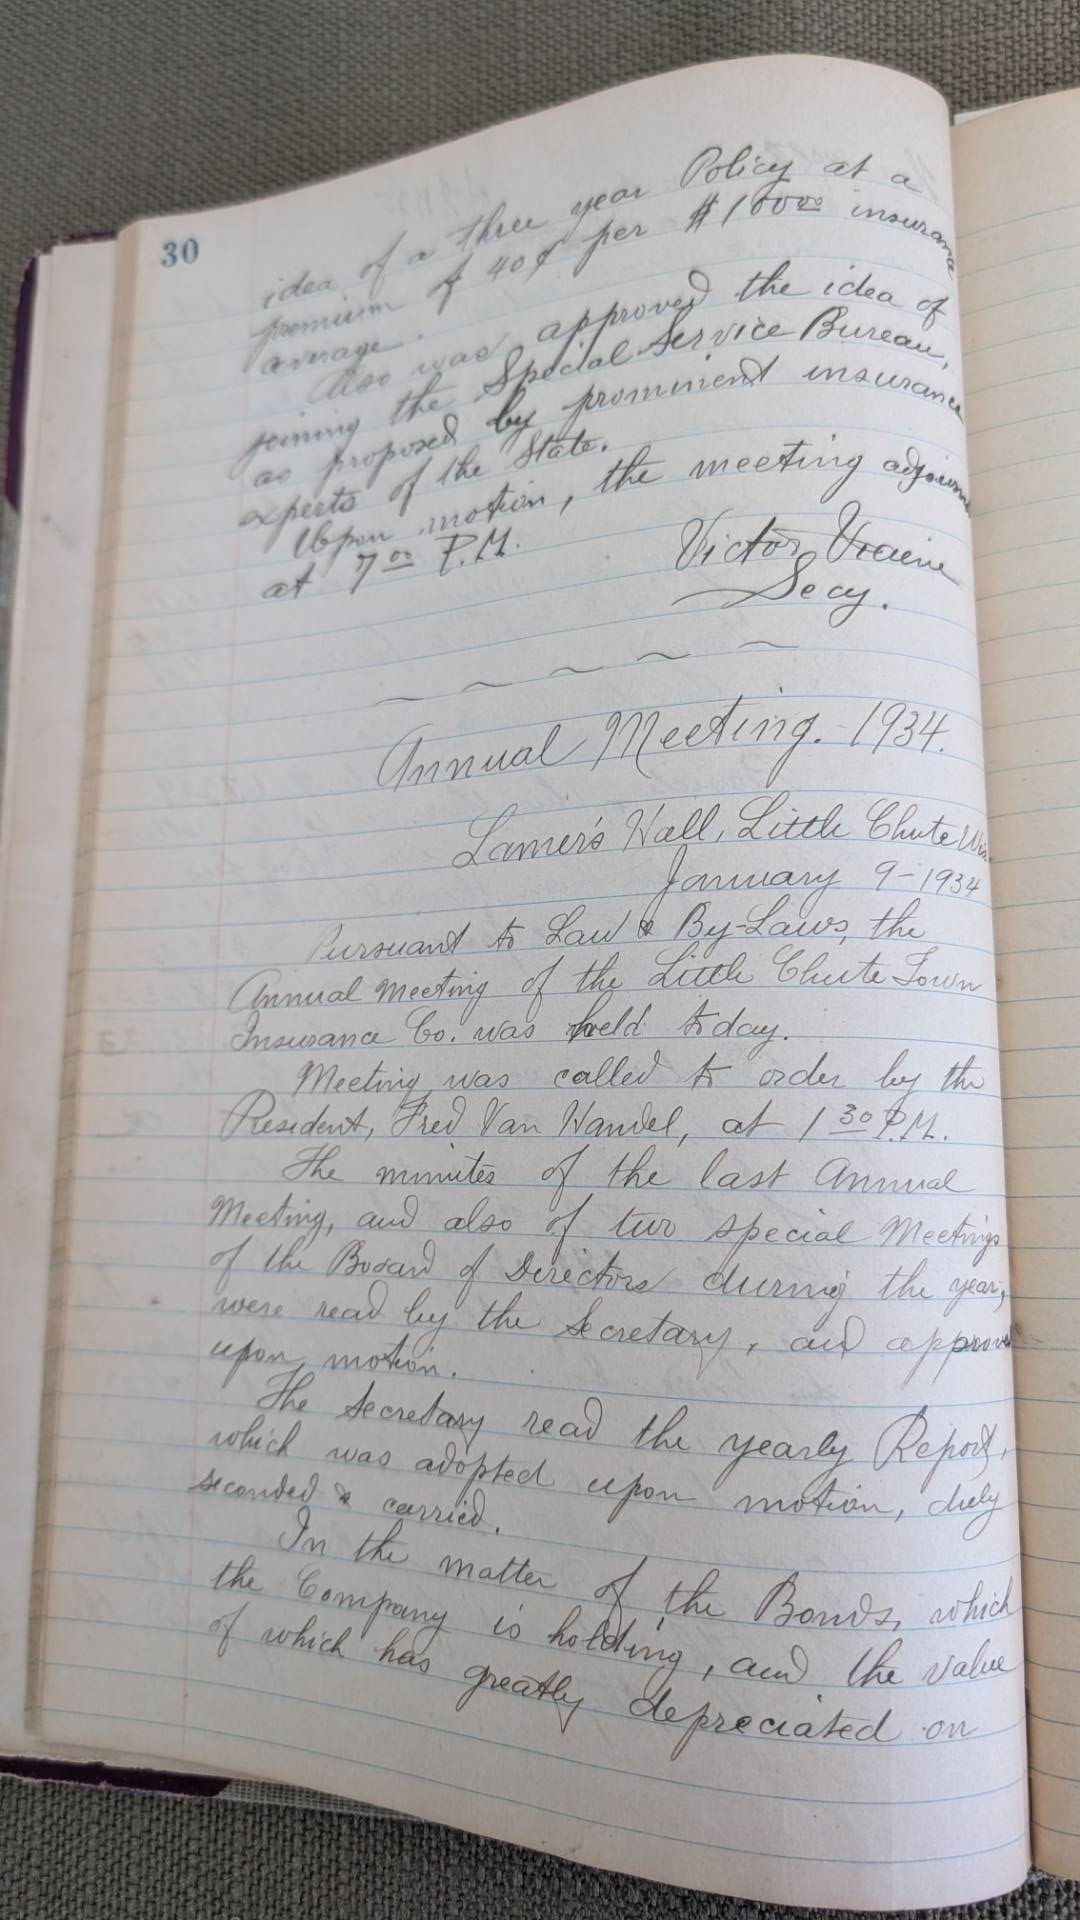 30
idea of a three year Policy at a
premium of 40¢ per $100000 insurance
average.
Also was approved the idea of
joining the Special Service Bureau,
as proposed by prominent insurance
experts of the State.
Upon motion, the meeting adjourned
at 7 00 P.M.
Victor
Secy.
Annual Meeting. - 1934.
Lamer's Hall, Little Chute Wis.
January 9 - 1934
Pursuant to Law & By-Laws, the
Annual Meeting of the Little Chute Town
Insurance Co. was held today.
Meeting was called to order by the
President, Fred Van Handel, at 1 30 P.M.
The minutes of the last Annual
Meeting, and also of two special Meetings
of the Board of Directors during the year,
were read by the Secretary, and approved
upon motion.
The Secretary read the yearly Report,
which was adopted upon motion, duly
seconded & carried.
In the matter of the Bonds, which
the Company is holding, and the value
of which has greatly depreciated on